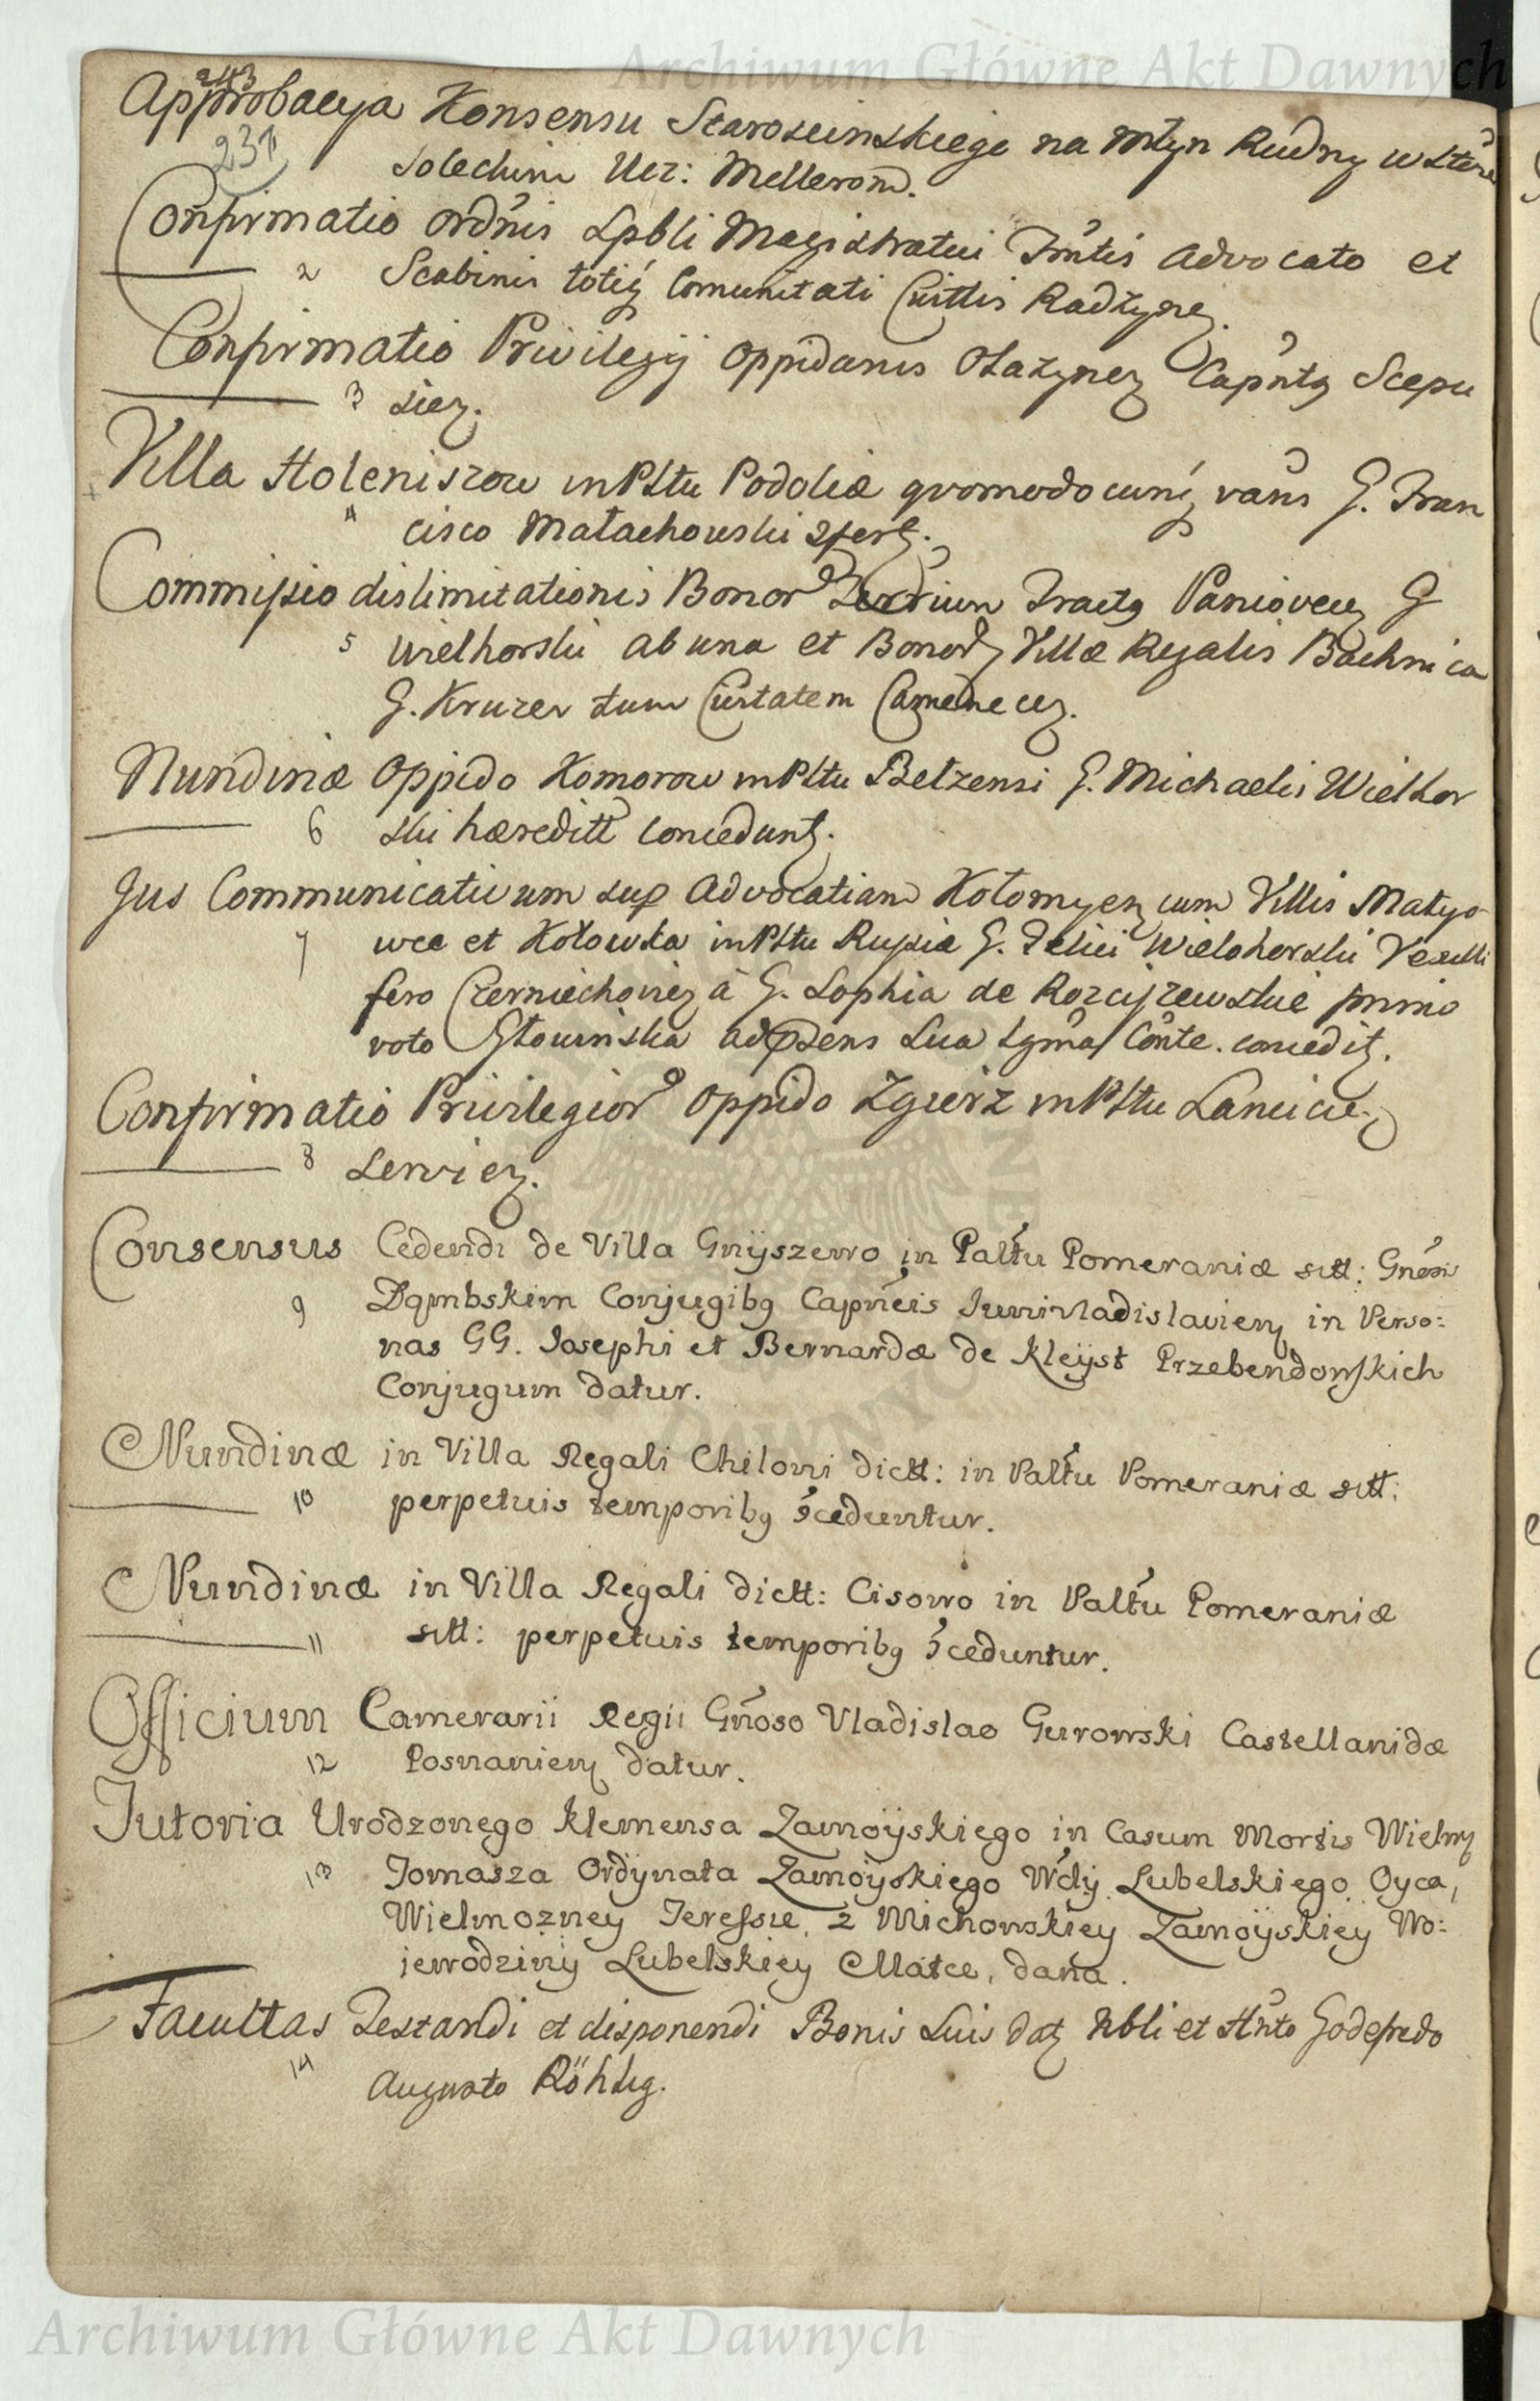 Archiwum Główne Akt Dawnych
243
Approbacya Konsensu Staroscinskiego na Młyn Rudny w Stare
231
Solechim Ucz: Mellerom.
Confirmatio Ordnis Spbli Magistratui Frntis Advocato et
2 Scabinis totiq Comunitati Cuittis Radzynez.
Confirmatio Privilegij Oppidanis Osazynez Capntg Scepu
3 siez.
Villa Holeniszow in Pltu Podoliæ qvomodocunq vans G. Fran
4 cisco Małachowski
Commissio dislimitationis Bonor Tractg Paniovecz G
5 Wielhorski ab una et Bonor Villæ Regalis Bachnica
G. Kruzer tum Ciuitatem Camenecez.
Nundinæ Oppido Komorow in Pltu Bełzensi G. Michaelis Wielhor
6 ski hæreditt concedunt.
Jus Communicativum sup Advocatiam Kołomyen cum Villis Matyo-
7 wce et Kołowka in Pltu Russiæ G. Felici Wielohorski Vexilli
fero Czerniechovien à G. Sophia de Rozciszewskie primo
voto Głowinska ad psens Sua Lgma Conte. concedit.
Confirmatio Privilegior Oppido Zgierz in Pltu Lancicie-
8 Lenciez.
Consensus Cedendi de Villa Gnyszewo in Paltu Pomeraniæ sitt: Gnosis
9 Dąmbskim Conjugibg Capneis Junivladislavien in Perso:
nas GG. Josephi et Bernardæ de Kleyst Przebendowskich
Conjugum datur.
Nundinæ in Villa Regali Chiloni dictt: in Paltu Pomeraniæ sitt:
10 perpetuis temporibg ɔceduntur.
Nundinæ in Villa Regali dictt: Cisowo in Paltu Pomeraniæ
11 sitt: perpetuis temporibg ɔceduntur.
Officium Camerarii Regii Gnoso Vladislao Gurowski Castellanidæ
12 Posnanien datur.
Tutoria Urodzonego Klemensa Zamoyskiego in Casum Mortis Wielm
13 Tomasza Ordynata Zamoyskiego Wdy Lubelskiego Oyca,
Wielmozney Teressie, z Michowskiey Zamoyskiey Wo:
jewodziny Lubelskiey Matce, dana.
Facultas Testandi et disponendi Bonis Suis dat Nbli et Hnto Godefredo
14 Augusto Röhlig.
Archiwum Główne Akt Dawnych